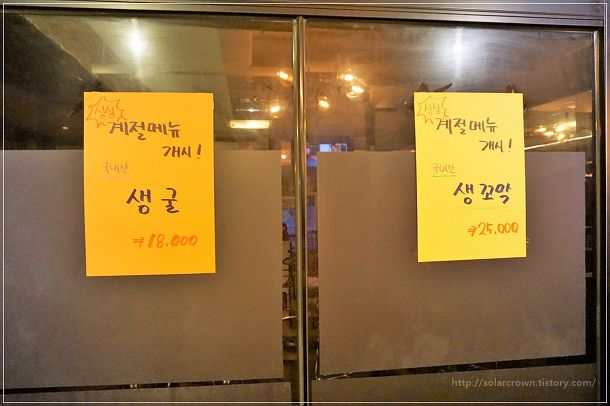 싱싱
계절메뉴
개시!
국내산
생굴
₩18.000
싱싱
계절메뉴
개시!
국내산
생꼬막
₩25.000
http://solarcrown.tistory.com/